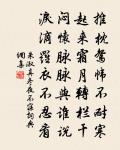 推枕鴛幃不耐寒
起來霜月轉欄干
悶懷脈脈與誰說
淚滴羅衣不忍看
朱淑真冬夜不寐詞典
網集